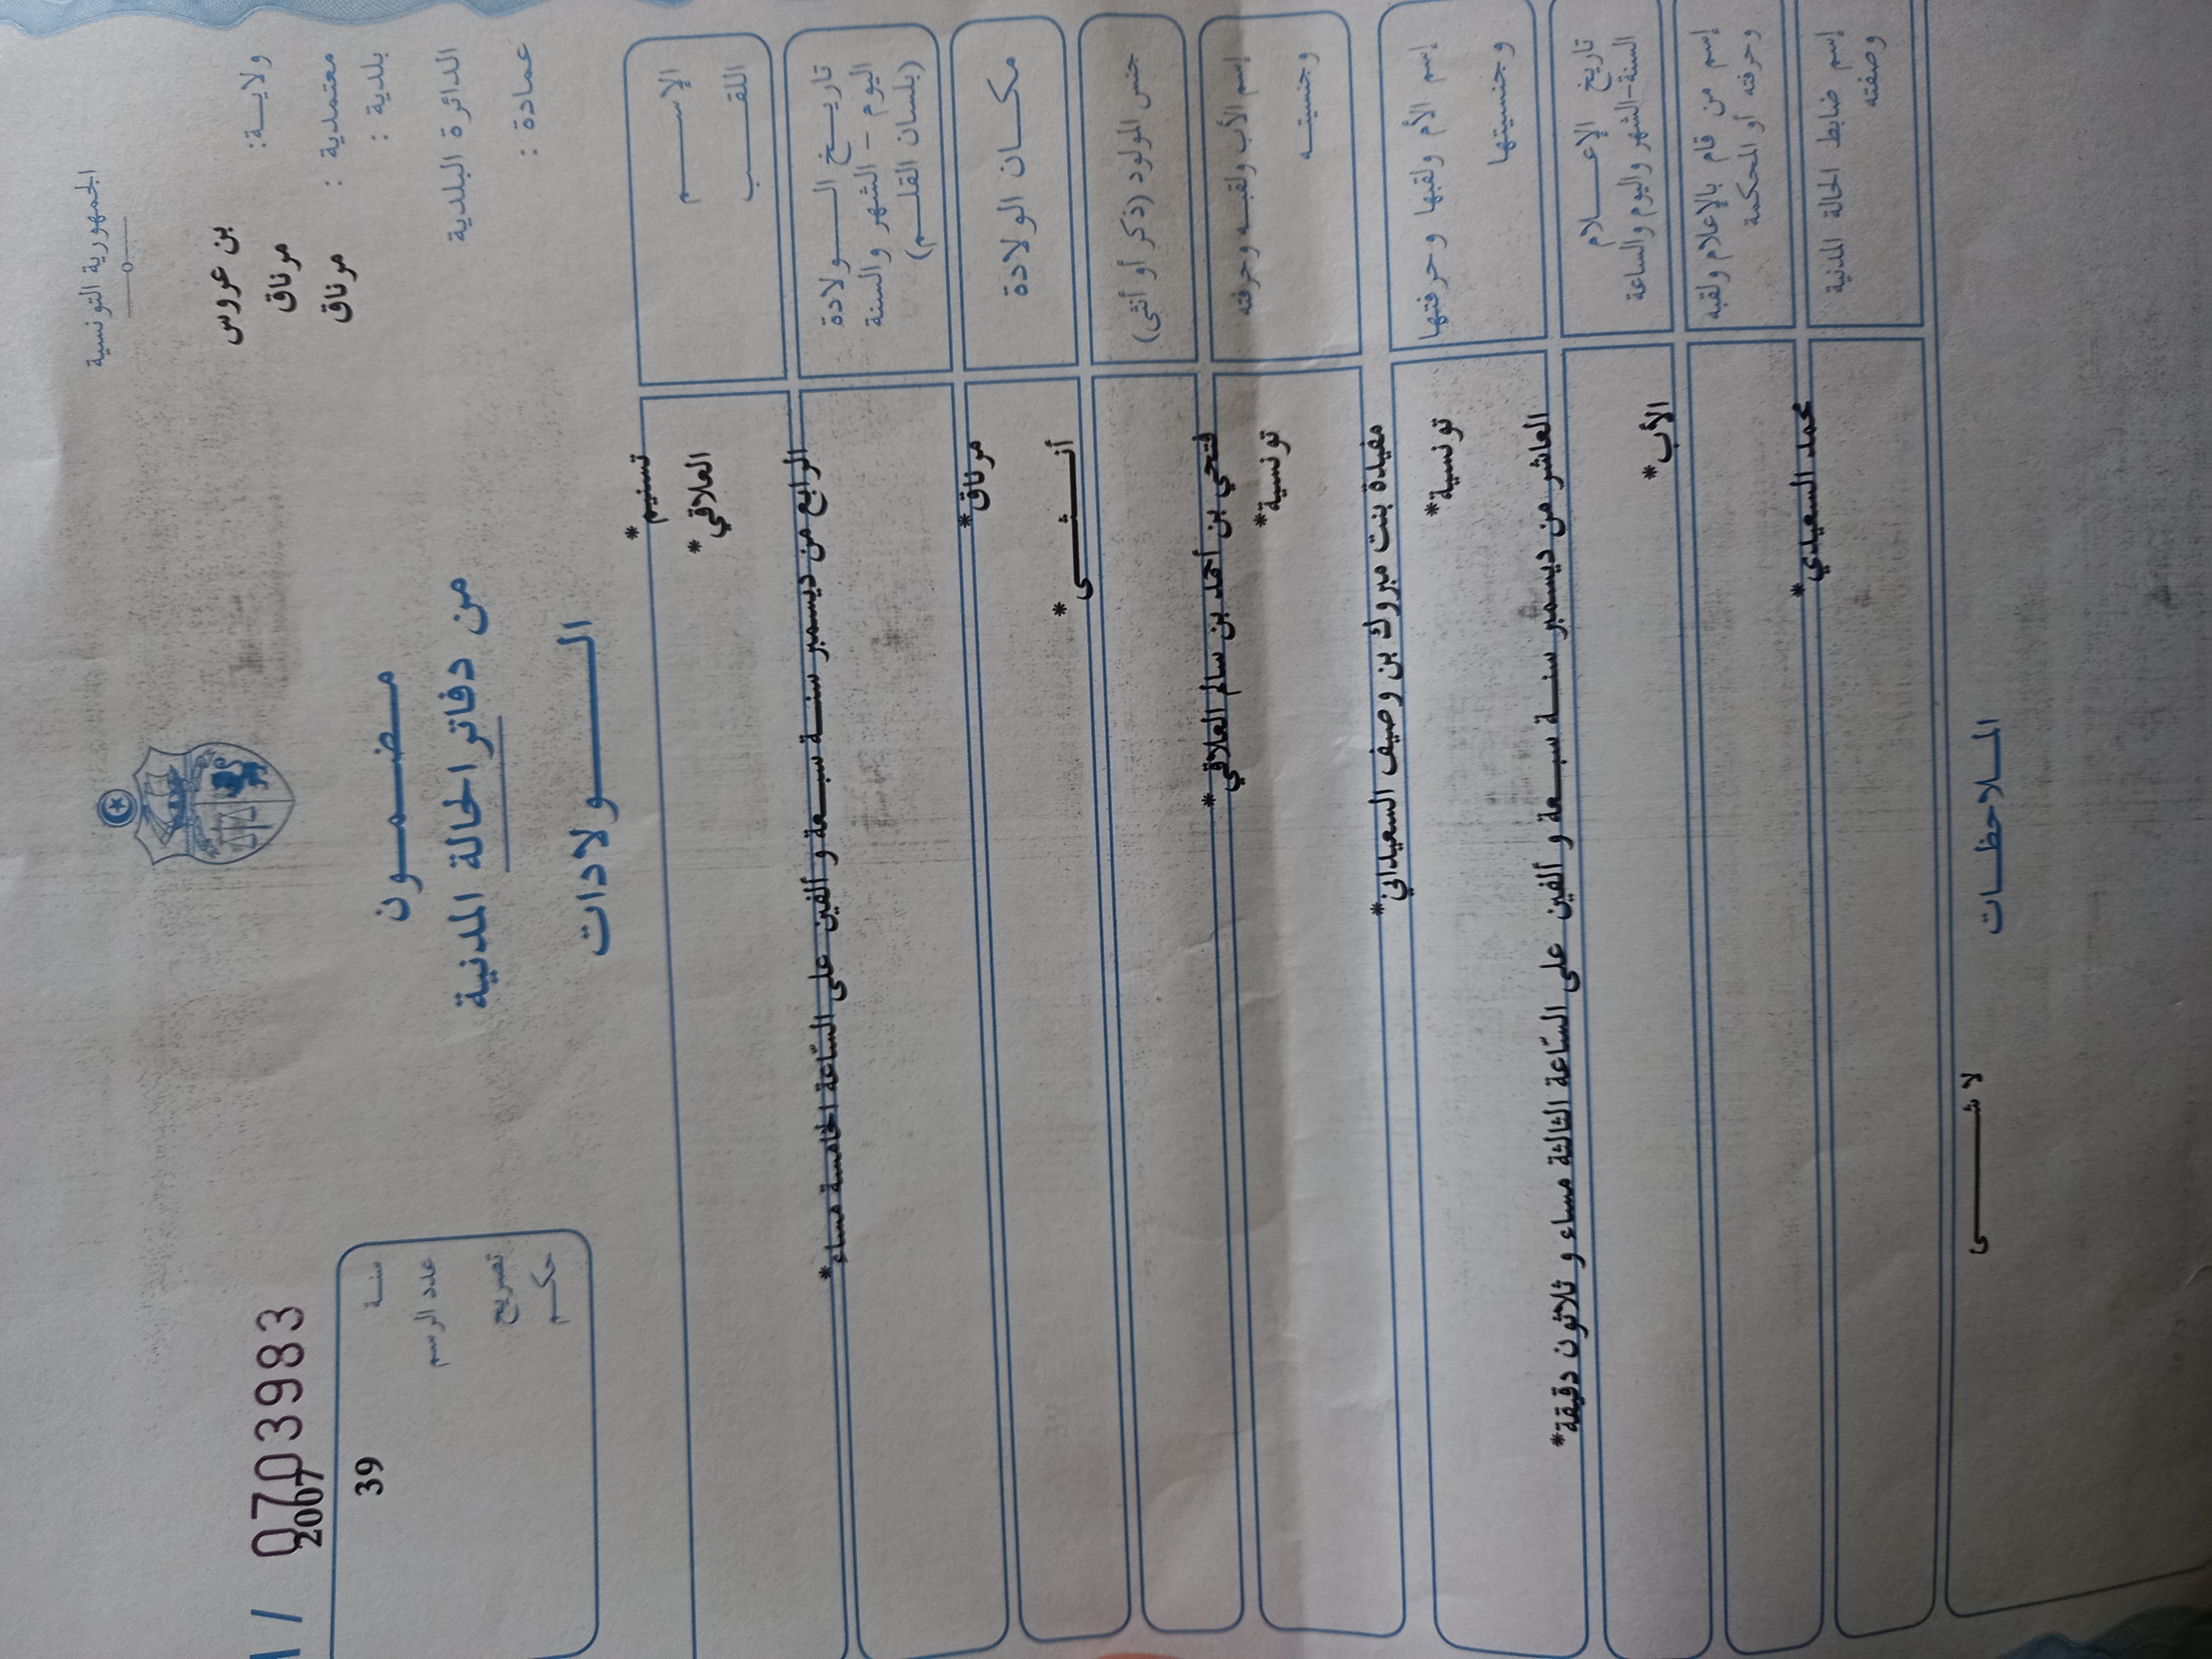 الجمهورية التونسية
ولايـــة: بن عروس
معتمدية : مرناق
بلدية : مرناق
الدائرة البلدية
عمادة :
مـضـمـون
من دفاتر الحالة المدنية
الـــولادات
07703983
2007
سنـة
39
عدد الرسم
تصريح
حكـم
الإســـم
اللقـــب
تسنيم*
العلاقي*
تاريـخ الـــولادة
اليوم - الشهر والسنة
(بلسان القلـم)
الرابع من ديسمبر سنـــة سبـــعة و ألفين على السّاعة الخامسة مساء*
مكــان الولادة
مرناق*
جنس المولود (ذكر أو أنثى)
أنـــثـــى*
إسم الأب ولقبـه وحرفته
وجنسيتـه
فتحي بن أحمد بن سالم العلاقي*
تونسية*
إسم الأم ولقبها وحرفتها
وجنسيتها
مفيدة بنت مبروك بن وصيف السعيداني*
تونسية*
تاريخ الإعـــلام
السنة-الشهر واليوم والساعة
العاشر من ديسمبر سنـــة سبـــعة و ألفين على السّاعة الثالثة مساء و ثلاثون دقيقة*
إسم من قام بالإعلام ولقبه
وحرفته أو المحكمة
الأب*
إسم ضابط الحالة المدنية
وصفته
محمد السعيدي*
المــلاحظــات
لا شـــــى